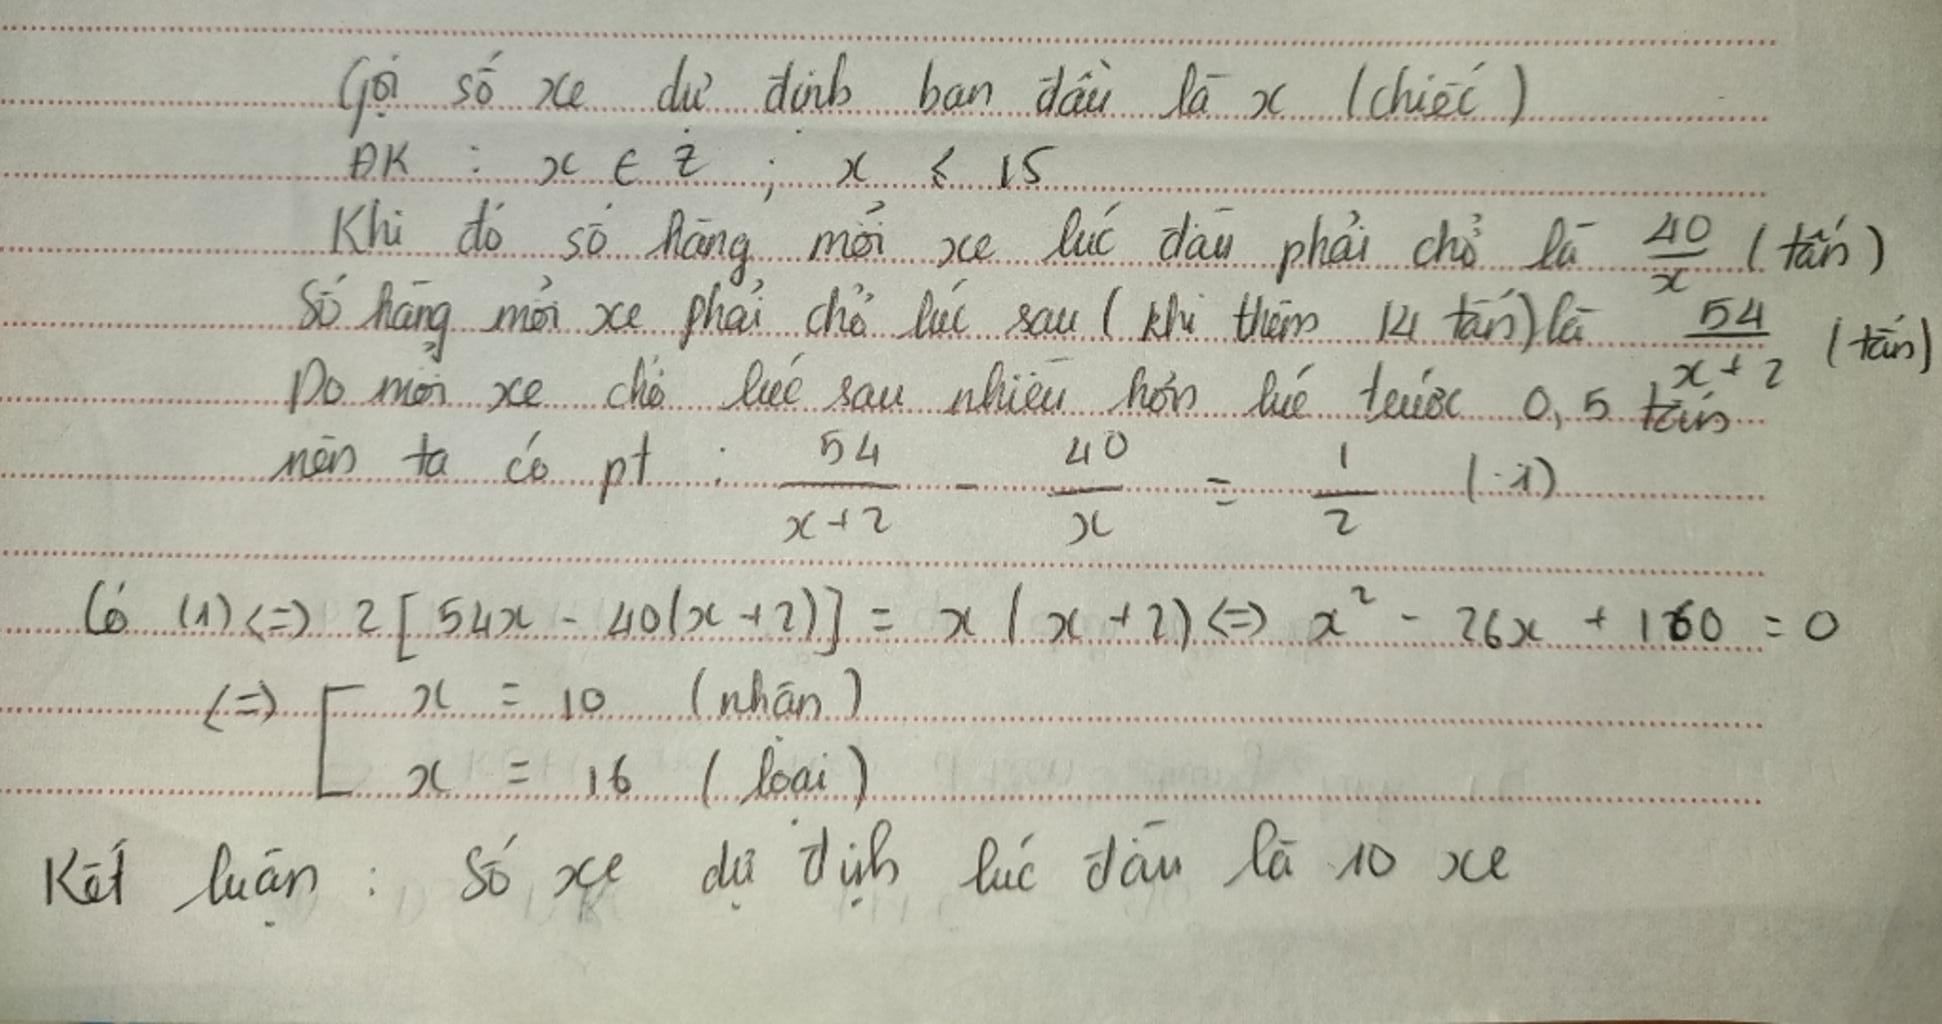 Gọi số xe dự định ban đầu là x (chiếc)
ĐK : x ∈ Z ; x ≤ 15
Khi đó số hàng mỗi xe lúc đầu phải chở là 40/x (tấn)
Số hàng mỗi xe phải chở lúc sau (khi thêm 14 tấn) là 54/(x+2) (tấn)
Do mỗi xe chở lúc sau nhiều hơn lúc trước 0,5 tấn
nên ta có pt : 54/(x+2) - 40/x = 1/2 (1)
Có (1) <=> 2[54x - 40(x+2)] = x(x+2) <=> x² - 26x + 160 = 0
<=> [ x = 10 (nhận)
x = 16 (loại)
Kết luận : Số xe dự định lúc đầu là 10 xe